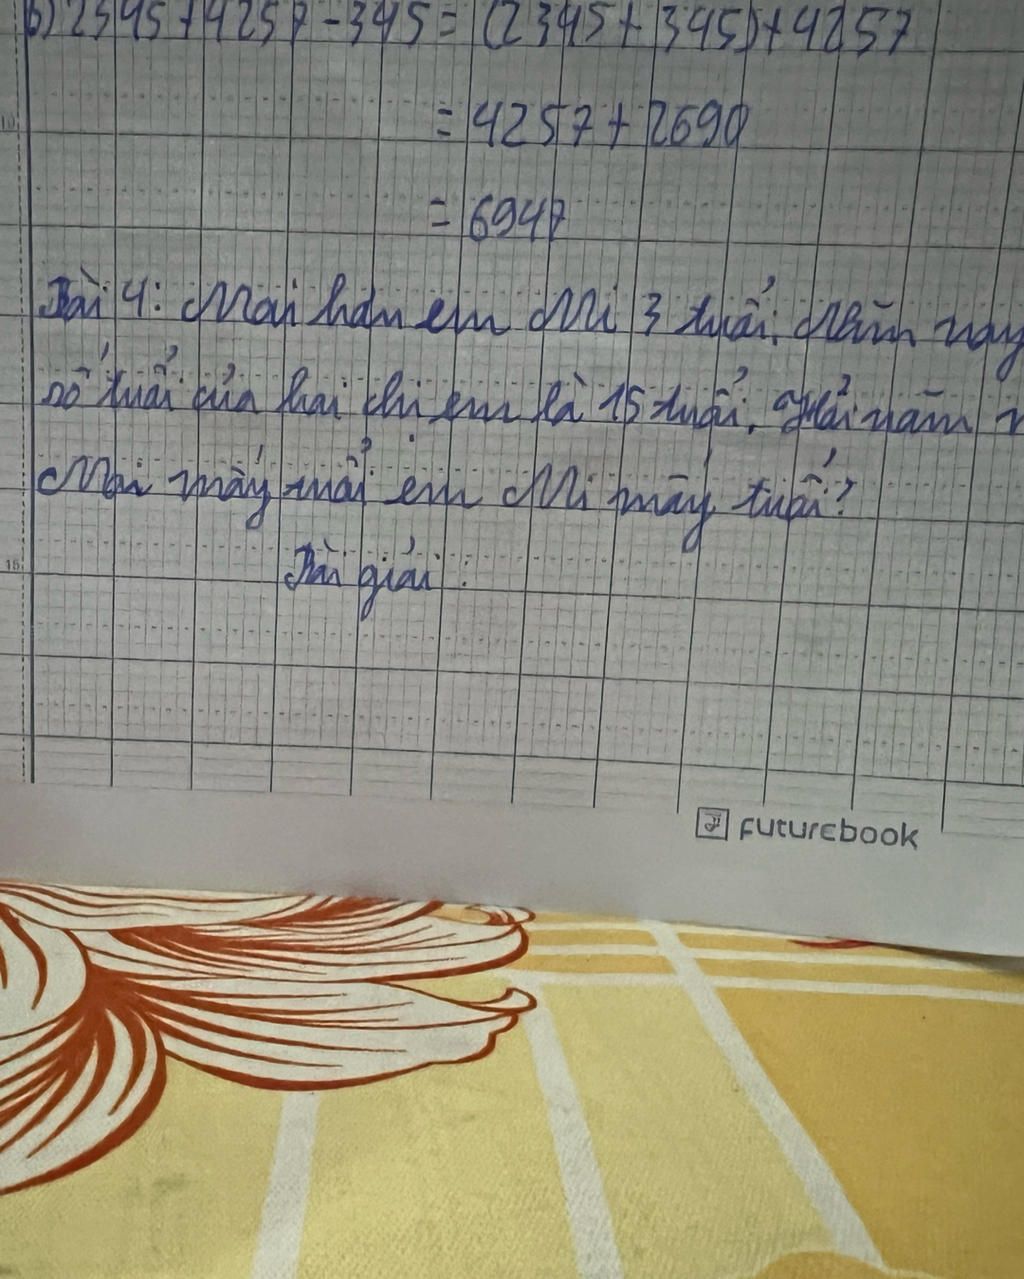 b) 2345 + 4257 - 345 = (2345 + 345) + 4257
= 4257 + 2690
= 6947
10
Bài 4: Mai hơn em Mi 3 tuổi. Năm nay
số tuổi của hai chị em là 15 tuổi. Hỏi năm n
Mai mấy tuổi em Mi mấy tuổi?
15
Bài giải:
futurebook